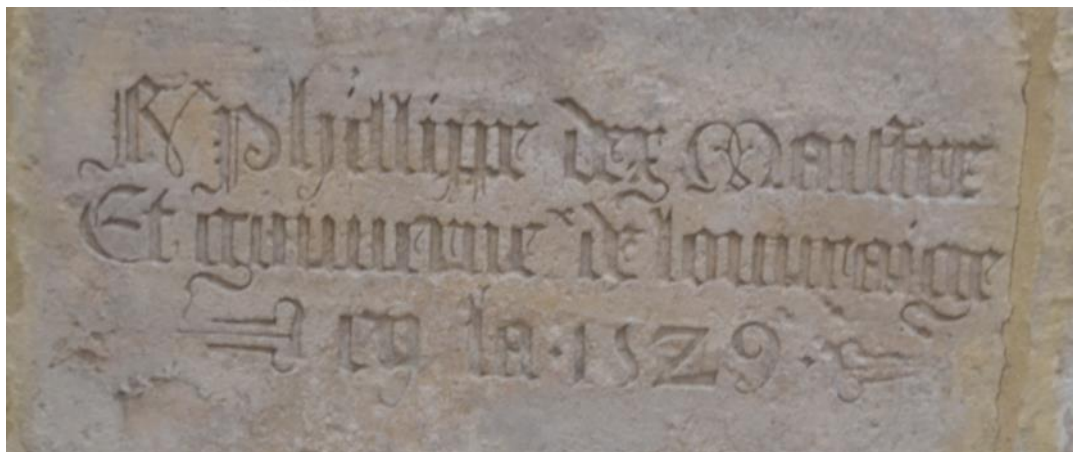 Phillippe dex Maistre
Et gouuerne de louuraige
en la · 1529 ·